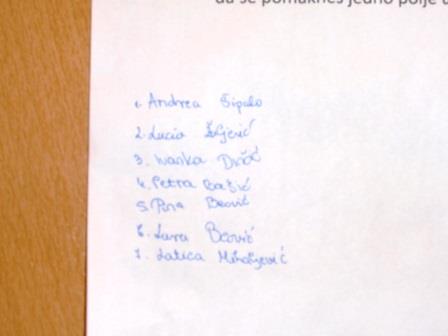 da se pomakneš jedno polje
1. Andrea Šipalo
2. Lucia
3. Ivanka
4. Petra Bašić
5. Beović
6. Lara Beović
7. Latica Mihaljević